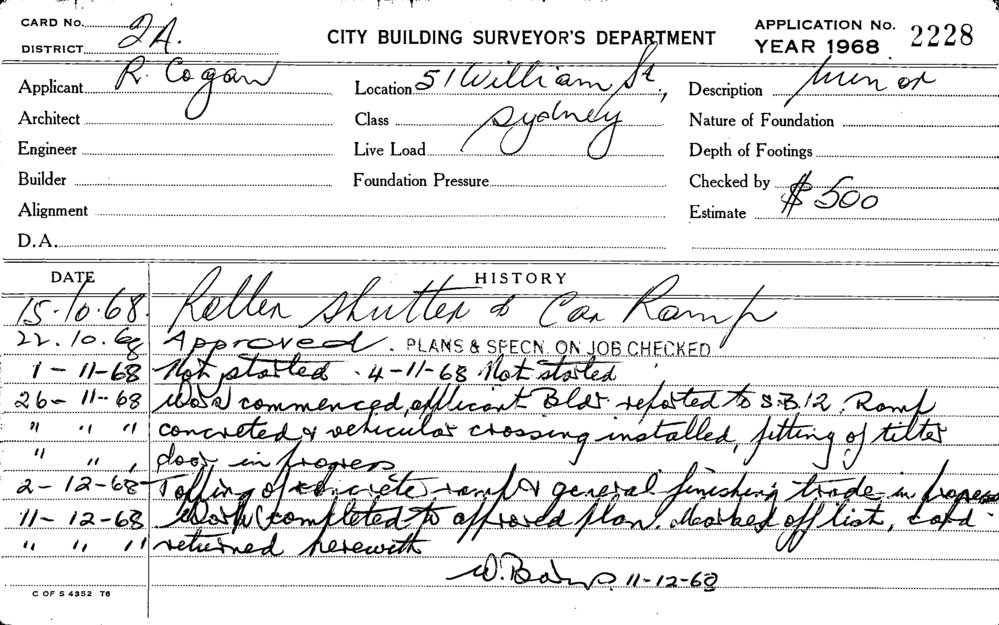 CARD No.
DISTRICT 2A.
CITY BUILDING SURVEYOR'S DEPARTMENT
APPLICATION No. 2228
YEAR 1968
Applicant R. Cogan
Location 51 William St.,
Description Minor
Architect
Class Sydney
Nature of Foundation
Engineer
Live Load
Depth of Footings
Builder
Foundation Pressure
Checked by
Alignment
Estimate $500
D.A.
DATE HISTORY
15.10.68. Roller Shutter & Car Ramp
22.10.68 Approved. PLANS & SPECN. ON JOB CHECKED
1-11-68 Not started. 4-11-68 Not started
26-11-68 Work commenced, applicant Bldr reported to S.B.12. Ramp
" " " concreted & vehicular crossing installed, fitting of tilter
" " , door in progress
2-12-68 Topping of concrete ramp & general finishing trade in progress
11-12-68 Work completed to approved plan. Marked off list, card
" " " returned herewith
W. 11-12-68
C OF S 4352 T6